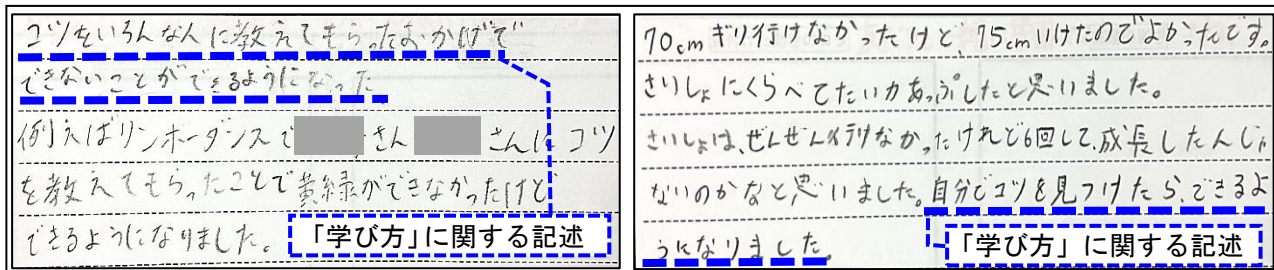 コツをいろんな人に教えてもらったおかげで
できないことができるようになった
例えばリンボーダンスで さん さんに コツ
を教えてもらったことで黄緑ができなかったけど
できるようになりました。
「学び方」に関する記述
70cmギリ行けなかったけど、75cmいけたのでよかったです。
さいしょにくらべてたい力あっぷしたと思いました。
さいしょは、ぜんぜん行けなかったけれど6回して、成長したんじゃ
ないのかなと思いました。自分でコツを見つけたら、できるよ
うになりました。
「学び方」に関する記述